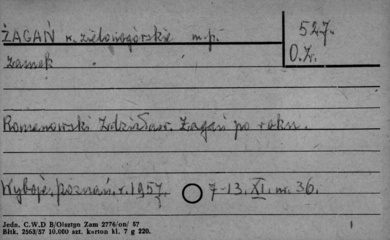 ŻAGAŃ w. zielonogórskie m.p.
527.
O.Z.
zamek
Romanowski Zdzisław. Żagań po roku.
Wyboje. Poznań. r. 1957. 7-13. XI. nr. 36.
Jedn. C.W.D B/Olsztyn Zam 2776/on/ 57
Bltk. 2563/57 10.000 szt. karton kl. 7 g 220.